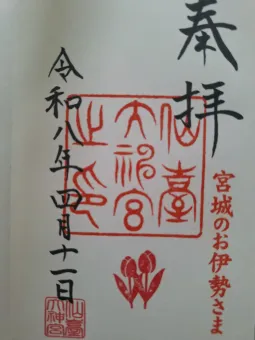 奉拝
宮城のお伊勢さま
仙臺
大神宮
之印
令和八年四月十一日
仙臺
大神宮